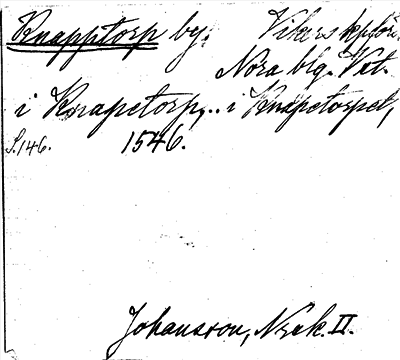 Knapptorp by. Vikers kpförs.
Nora blg. Vstm.
i Knapetorp, .. i Knapetorpet,
S. 146. 1546.
Johansson, Nsk. II.